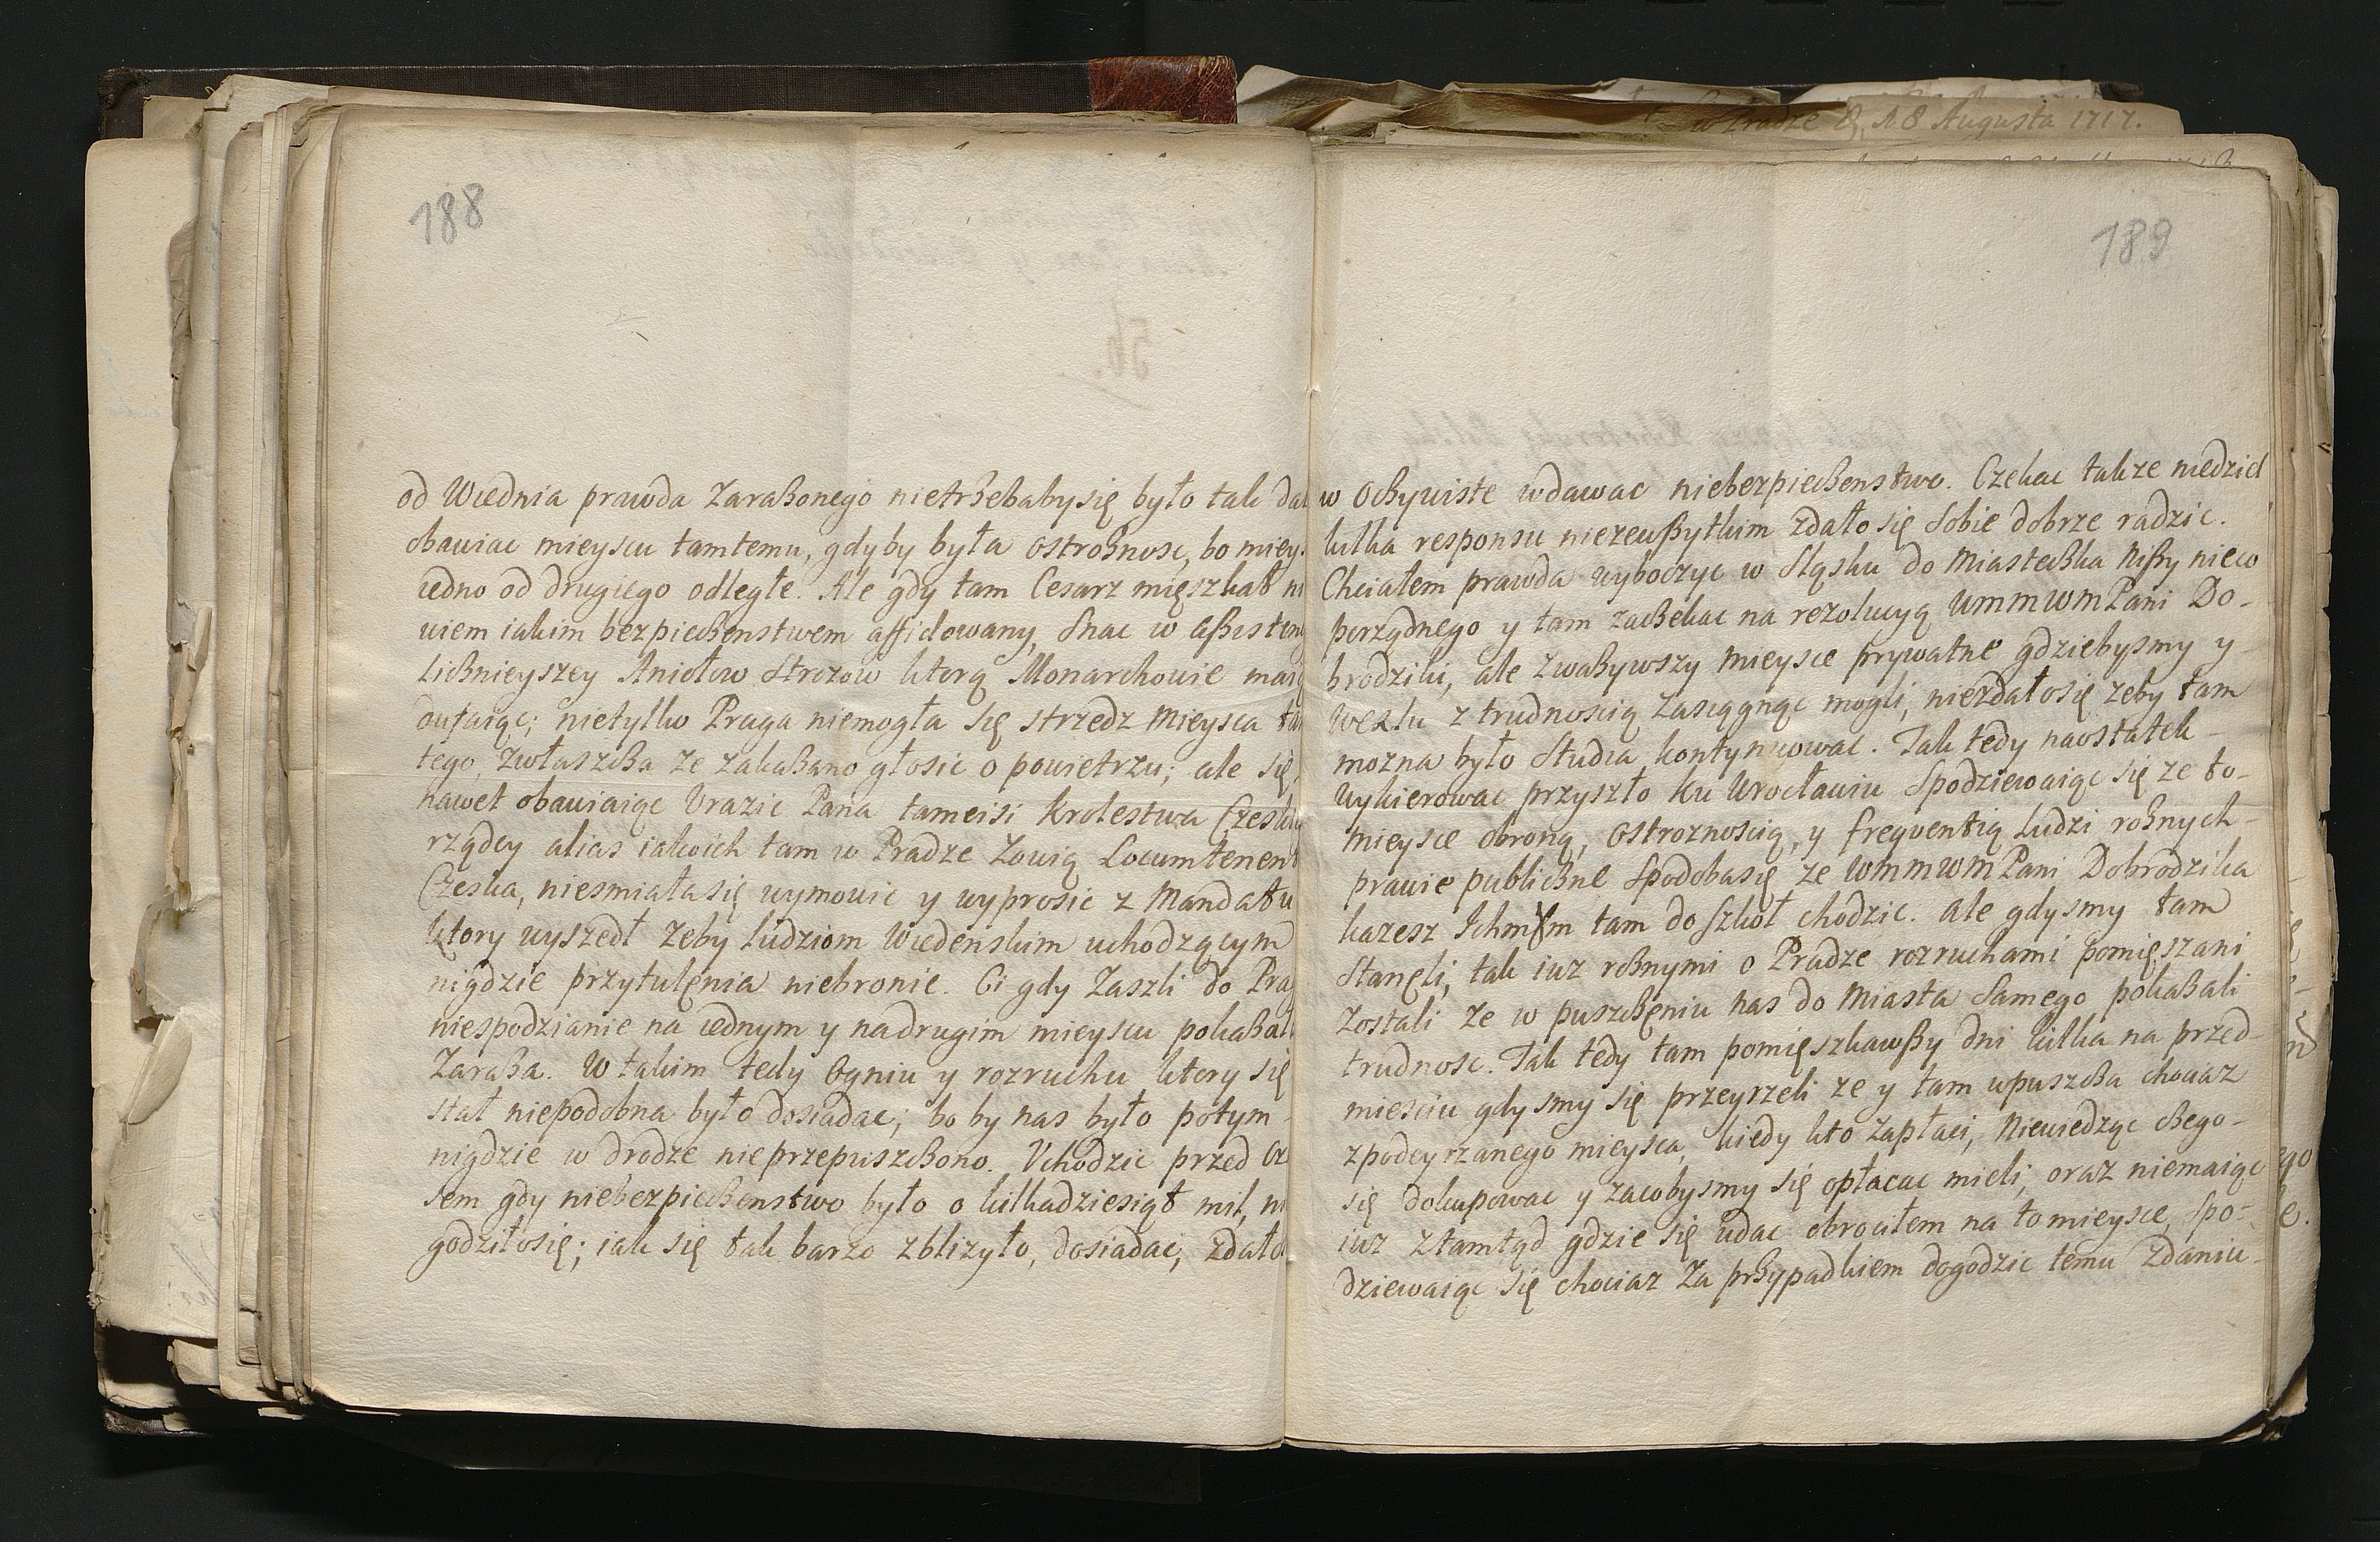 w Pradze d. 18 Augusta 1717.
188
od Wiednia prawda zaraßonego nietrßebabysię było tak
obawiac mieyscu tamtemu, gdyby była ostroßnosc, bo
iedno od drugiego odległe. Ale gdy tam Cesarz mięszkał
wiem iakim bezpiecßenstwem affidowany, snac w
licßnieyszey Aniołow Strozow ktorą Monarchowie
dufaiąc; nietylko Praga niemogła się strzedz mieysca
tego, zwłaszcßa ze zakaßano głosic o powietrzu; ale się
nawet obawiaiąc Vrazic Pana tameisi krolestwa
rządcy alias iakoich tam w Pradze zowią
Czeska, niesmiałasię wymowic y wyprosic z Mandatu
ktory wyszedł zeby ludziom Wiedenskim uchodzącym
nigdzie przytulęnia niebronic. Ci gdy zaszli do
niespodzianie na iednym y nadrugim mieyscu
Zaraßa. W takim tedy Ogniu y rozruchu ktory się
stał niepodobna było dosiadac; bo by nas było potym
nigdzie w drodze nieprzepuszcßono. Vchodzic przed
sem gdy niebezpiecßenstwo było o kilkadziesiąt mil,
godziłosię; iak się tak barzo zblizyło, dosiadac,
189
w ocßywiste wdawac niebezpiecßenstwo. Czekac takze niedziel
kilka responsu niezewßytkim zdało się sobie dobrze radzic.
Chciałem prawda wyboczyc w Sląsku do Miastecßka Nißy nieco
porządnego y tam zacßekac na rezolucyą WMMWMPani Do-
brodziki, ale zwaßywszy mieysce prywatne gdziebysmy y
wexlu z trudnoscią zasiągnąc mogli, niezdałosię zeby tam
mozna było Studia kontynuowac. Tak tedy naostatek
wykierowac przyszło ku Wrocławiu spodziewaiąc się ze to-
mieysce obroną, ostroznoscią, y frequentią ludzi roßnych
prawie publicßne spodobasię ze WMMWMPani Dobrodzika
kazesz tam do szkoł chodzic. Ale gdysmy tam
stanęli, tak iuz roßnymi o Pradze rozruchami pomięszani
zostali ze w puszcßeniu nas do Miasta samego pokaßali
trudnosc. Tak tedy tam pomięszkawßy dni kilka na przed-
miesciu gdysmy się przeyrzeli ze y tam wpuszcßa chociaz
zpodeyrzanego mieysca, kiedy kto zapłaci, Niewiedząc cßego
się dokupowac y zacobysmy się opłacac mieli, oraz niemaiąc
iuz ztamtąd gdzie się udac obrociłem na tomieysce, spo-
dziewaiąc się chociaz za prßypadkiem dogodzic temu zdaniu